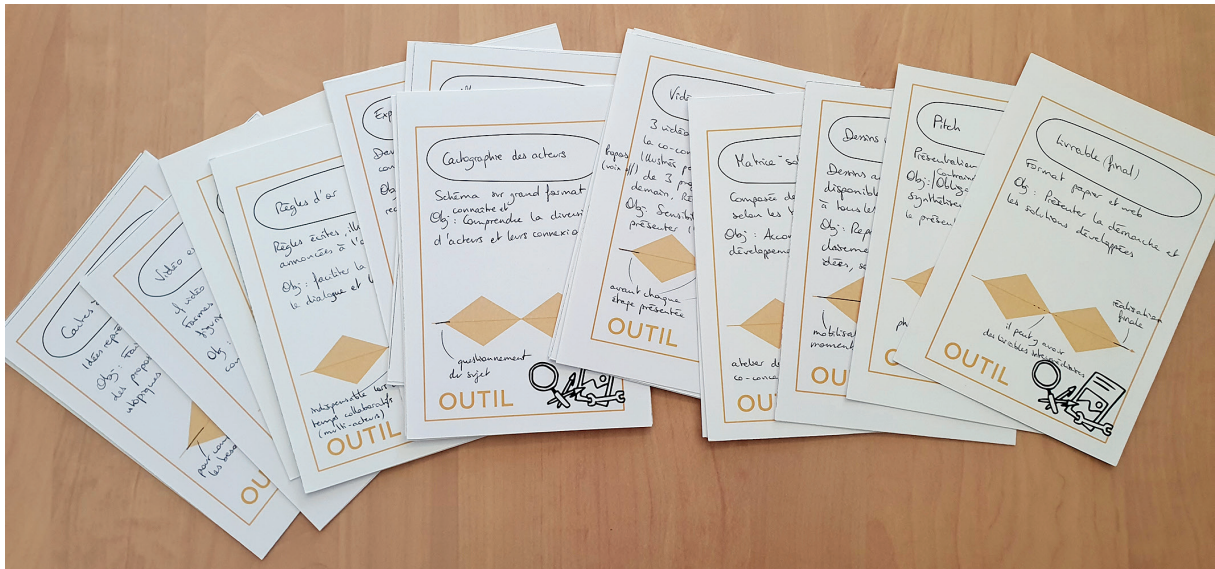 Cartes
Idées repré
Obj : Fa
des propo
utopiques
pour com
les beso
OU
Vidéo e
1 vidéo
Formes
figur
Obj :
con
Règles d'or
Règles écrites, ill
annoncées à l'o
Obj : faciliter la
le dialogue et l
indispensable lors
temps collaboratifs
(multi-acteurs)
OUTIL
Exp
Des
con
Obj
rec
Cartographie des acteurs
Schéma sur grand format
connaître et
Obj : Comprendre la diversi
d'acteurs et leurs connexio
questionnement
du sujet
OUTIL
Vidé
3 vidéo
la co-con
illustrés pa
de 3 pro
demain. Ré
Obj : Sensibi
présenter
avant chaque
étape présentée
OUTIL
Matrice-sol
Composée de
selon les
Obj : Accom
développeme
atelier de
co-conce
OUT
Dessins
Dessins a
disponibl
à tous les
Obj : Rep
clairem
idées, s
mobilisa
moment
OU
Pitch
Présentation
Contrain
Obj : Oblige
synthétise
à présent
ph
Livrable (final)
Format papier et web
Obj : Présenter la démarche et
les solutions développées
réalisation
finale
il peut y avoir
des livrables intermédiaires
OUTIL